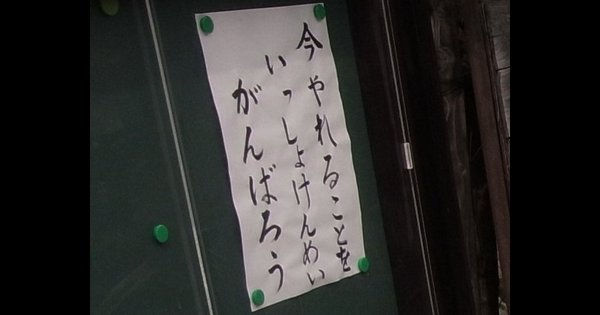 今やれることを
いっしょけんめい
がんばろう